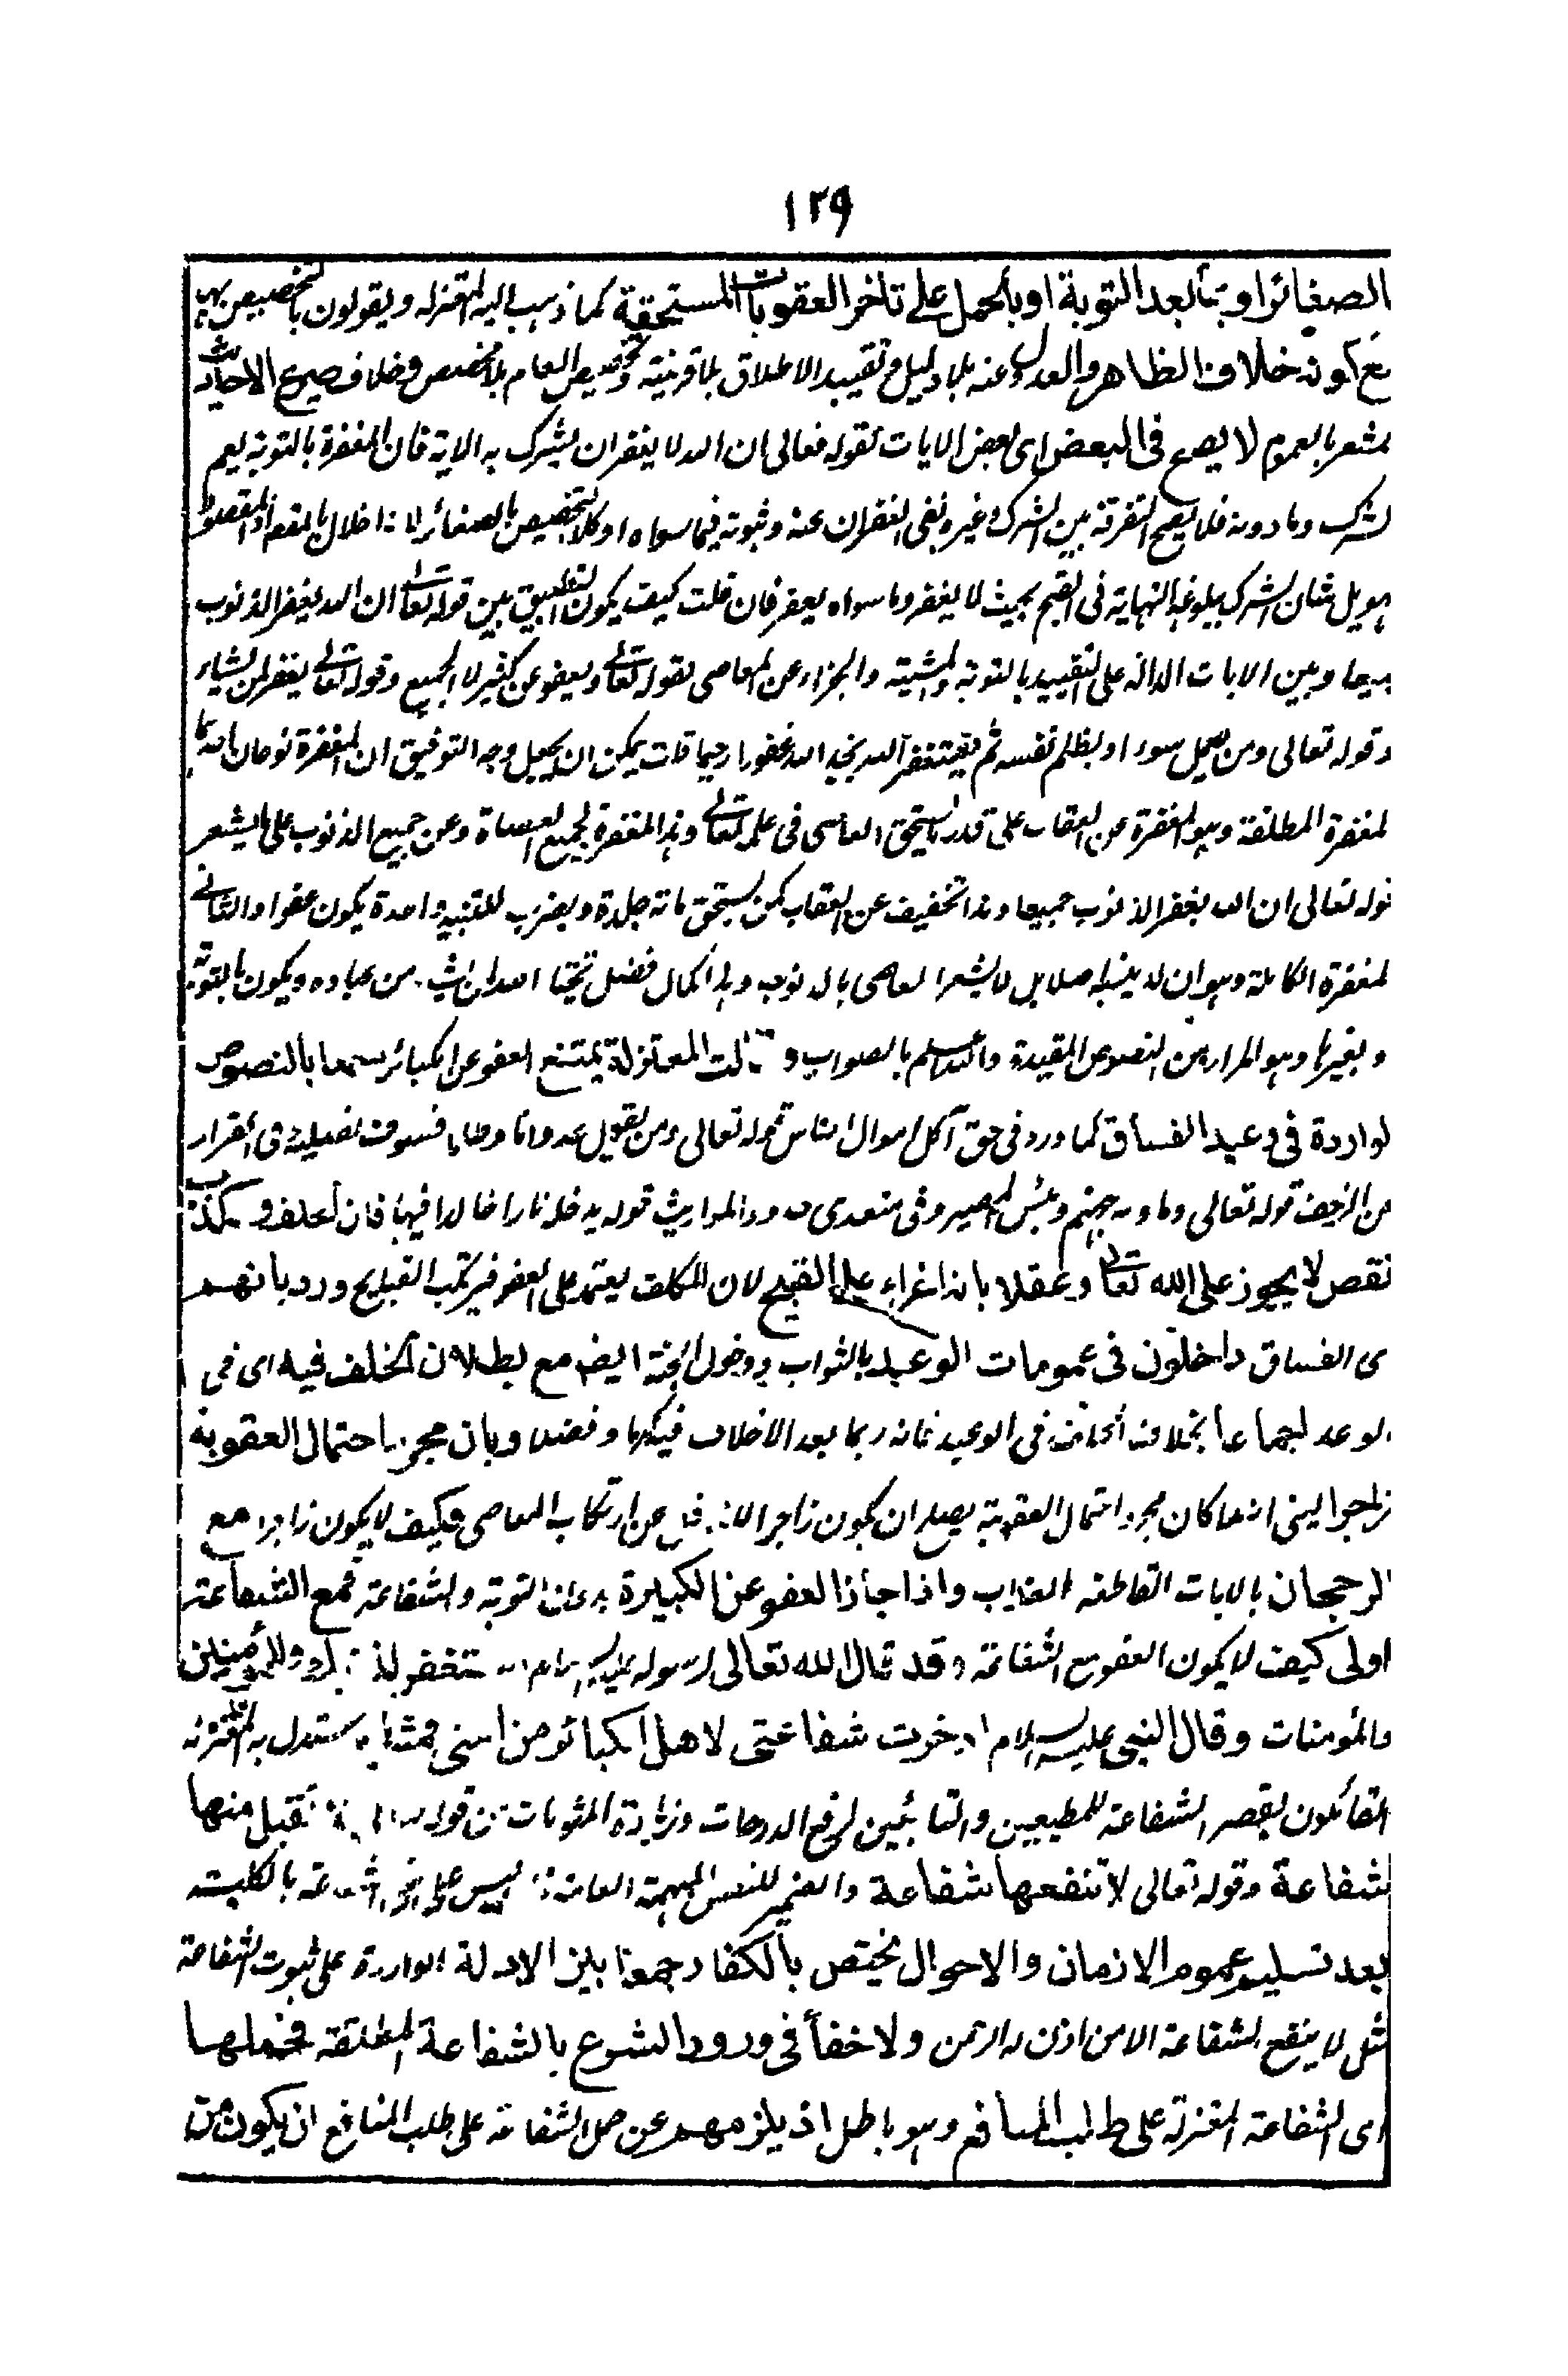 ١٢٩
الصغائر او بما بعد التوبة او بالحمل على تاخر العقوبات المستحقة كما ذهب اليه المعتزله ويقولون بالتخصيص بها
مع كونه خلاف الظاهر والعدول عنه بلا دليل وتقييد الاطلاق بلا قرينة وتخصيص العام بلا مخصص وخلاف صريح الاحاديث
لمشعر بالعموم لا يصح فى البعض اى بعض الايات كقوله تعالى ان الله لا يغفر ان يشرك به الاية فان المغفرة بالتوبة يعم
لشرك وما دونه فلا يصح التفرقة بين الشرك وغيره بنفى الغفران عنه وثبوته فيما سواه او كالتخصيص بالصغائر لانه اخلال بالمقصود
هويل شان الشرك ببلوغه النهاية فى القبح بحيث لا يغفر وما سواه يغفر فان قلت كيف يكون التطبيق بين قوله تعالى ان الله يغفر الذنوب
ميعا وبين الايات الدالة على التقييد بالتوبة والمشية والجزاء عن المعاصى كقوله تعالى ويعفو عن كثير لا الجميع وقوله تعالى يغفر لمن يشاء
وقوله تعالى ومن يعمل سوء او يظلم نفسه ثم يستغفر الله يجد الله غفورا رحيما قلت يمكن ان يجعل وجه التوفيق ان المغفرة نوعان احدها
لمغفرة المطلقة وهو المغفرة عن العقاب على قدر ما يستحق العاصى فى علمه تعالى وهذا المغفرة لجميع العصاة وعن جميع الذنوب على ما يشعر
قوله تعالى ان الله يغفر الذنوب جميعا وهذا تخفيف عن العقاب كمن يستحق مائة جلدة ويضرب للتنبيه واحدة يكون عفوا والثانى
لمغفرة الكاملة وهو ان لا يبتليه اصلا بل لا يشعر العاصى بالذنوب وهذا كمال فضل من عباده ويكون بالتوبة
وبغيرها وهو المراد من النصوص المقيدة والله اعلم بالصواب وقالت المعتزلة يمتنع العفو عن الكبائر سمعا بالنصوص
لواردة فى وعيد الفساق كما ورد فى حق آكل اموال الناس قوله تعالى ومن يفعل عدوانا وظلما فسوف نصليه وفى الفرار
من الزحف قوله تعالى وماويه جهنم وبئس المصير وفى متعدى حدود المواريث قوله يدخله نارا خالدا فيها فان الخلف وكذب
نقص لا يجوز على الله تعالى وعقلا بانه اغراء على القبيح لان المكلف يعتمد على العفو فيرتكب القبايح ورد بانهم
ى الفساق داخلون فى عمومات الوعيد بالثواب ودخول الجنة ايضا مع بطلان الخلف فيه اى فى
لوعد اجماعا بخلاف الخلف فى الوعيد فانه ربما يعد الاخلاف فيه كرما وفضلا وبان مجرد احتمال العقوبة
زاجرا يعنى انه لما كان مجرد احتمال العقوبة يصلح ان يكون زاجرا عن ارتكاب المعاصى فكيف لا يكون زاجرا مع
الرجحان بالايات القاطعة العذاب واذا جاز العفو عن الكبيرة بدون التوبة والشفاعة فمع الشفاعة
اولى كيف لا يكون العفو مع الشفاعة وقد قال الله تعالى لرسوله عليه السلام واستغفر لذنبك وللمؤمنين
والمؤمنات وقال النبى عليه السلام ادخرت شفاعتى لاهل الكبائر من امتى فمثل ما يستدل به المعتزلة
القائلون بقصر الشفاعة للمطيعين والتائبين لرفع الدرجات وزيادة المثوبات من قوله تعالى لا تقبل منها
شفاعة وقوله تعالى لا تنفعها شفاعة والضمير للنفس المبهمة العامة ليس على نفى الشفاعة بالكلية
بعد تسليم عموم الازمان والاحوال يختص بالكفار جمعا بين الادلة الواردة على ثبوت الشفاعة
مثل لا ينفع الشفاعة الا من اذن له الرحمن ولا خفاء فى ورود الشرع بالشفاعة المطلقة فحملها
اى الشفاعة المعتزلة على طلب المنافع وهو باطل اذ يلزمهم عن حمل الشفاعة على طلب المنافع ان يكون من